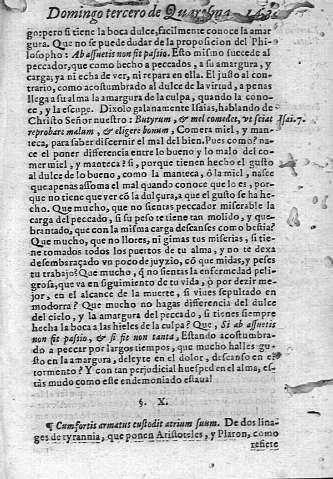 Domingo tercero de Quaresma
go: pero si tiene la boca dulce, facilmente conoce la amar
gura. Que no se puede dudar de la proposicion del Phi-
losopho: Ab assuetis non fit passio. Esto mismo sucede al
peccador, que como hecho a peccados, a su amargura, y
carga; ya ni echa de ver, ni repara en ella. El justo al con-
trario, como acostumbrado al dulce de la virtud, a penas
llega a su alma la amargura de la culpa, quando la cono-
ce, y la escupe. Dixolo galanamente Isaias, hablando de
Christo Señor nuestro: Butyrum, & mel comedet, vt sciat Isai. 7.
reprobare malum, & eligere bonum, Comera miel, y man-
teca, para saber discernir el mal del bien. Pues como? na-
ce el poner differencia entre lo bueno y lo malo del co-
mer miel, y manteca? si, porque tienen hecho el gusto
al dulce de lo bueno, como la manteca, ò la miel, nasce
que apenas assoma el mal quando conoce que lo es, por-
que no tiene que ver cō la dulçura, a que el gusto se ha he-
cho. Que mucho, que no sientas peccador miserable la
carga del peccado, si su peso te tiene tan molido, y que-
brantado, que con la misma carga descanses como bestia?
Que mucho, que no llores, ni gimas tus miserias, si tie-
ne tomados todos los puertos de tu alma, y no te dexa
desembraçado vn poco de juyzio, cō que midas, y peses
tu trabajo? Que mucho, q̃ no sientas la enfermedad peli-
grosa, que va en siguimiento de tu vida, ò por dezir me-
jor, en el alcance de la muerte, si viues sepultado en
modorra? Que mucho no hagas differencia del dulce
del cielo, y la amargura del peccado, si tienes siempre
hecha la boca a las hieles de la culpa? Que, Si ab assuetis
non fit passio, & si fit non tanta, Estando acostumbra-
do a peccar por largos tiempos, que mucho halles gu-
sto en la amargura, deleyte en el dolor, descanso en el
tormento? Y con tan perjudicial huesped en el alma, es-
tàs mudo como este endemoniado estaua!
§. X.
¶ Cum fortis armatus custodit atrium suum. De dos lina-
ges de tyrannia, que ponen Aristoteles, y Platon, como
refiere